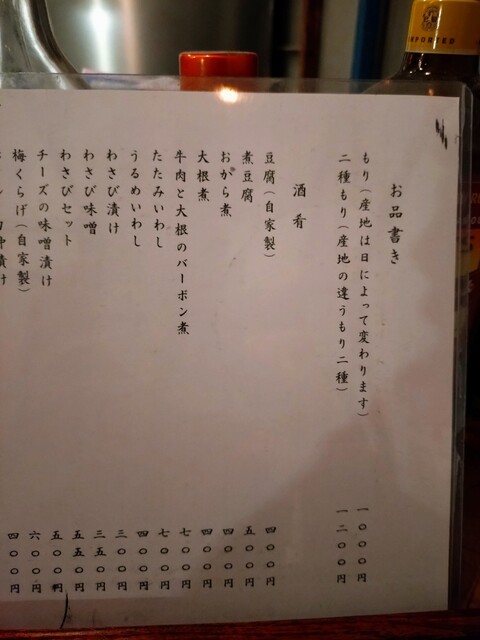 お品書き
もり(産地は日によって変わります) 一〇〇〇円
二種もり(産地の違うもり二種) 一二〇〇円
酒肴
豆腐(自家製) 四〇〇円
煮豆腐 五〇〇円
おから煮 四〇〇円
大根煮 四〇〇円
牛肉と大根のバーボン煮 七〇〇円
たたみいわし 七〇〇円
うるめいわし 四〇〇円
わさび漬け 三〇〇円
わさび味噌 三五〇円
わさびセット 五五〇円
チーズの味噌漬け 五〇〇円
梅くらげ(自家製) 六〇〇円
四〇〇円